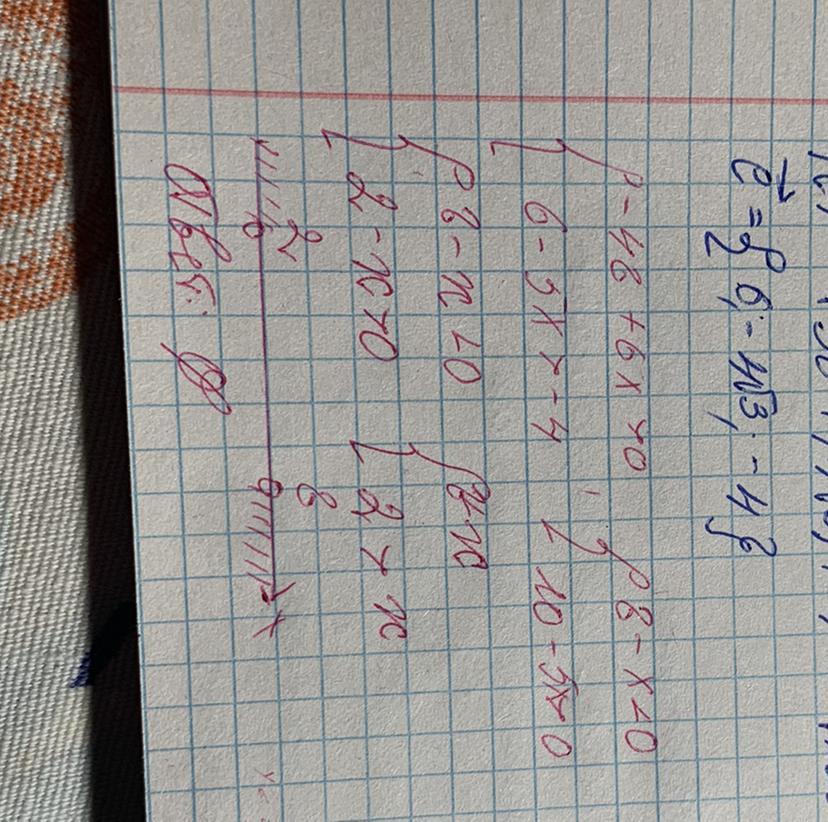 e⃗ = { 6; -4√3; -4 }
{ -48 + 6x > 0
{ 6 - 5x > -4
{ 8 - x < 0
{ 10 - 5x > 0
{ 8 - x < 0
{ 2 - x > 0
{ 8 < x
{ 2 > x
2 8
x
Ответ: ∅